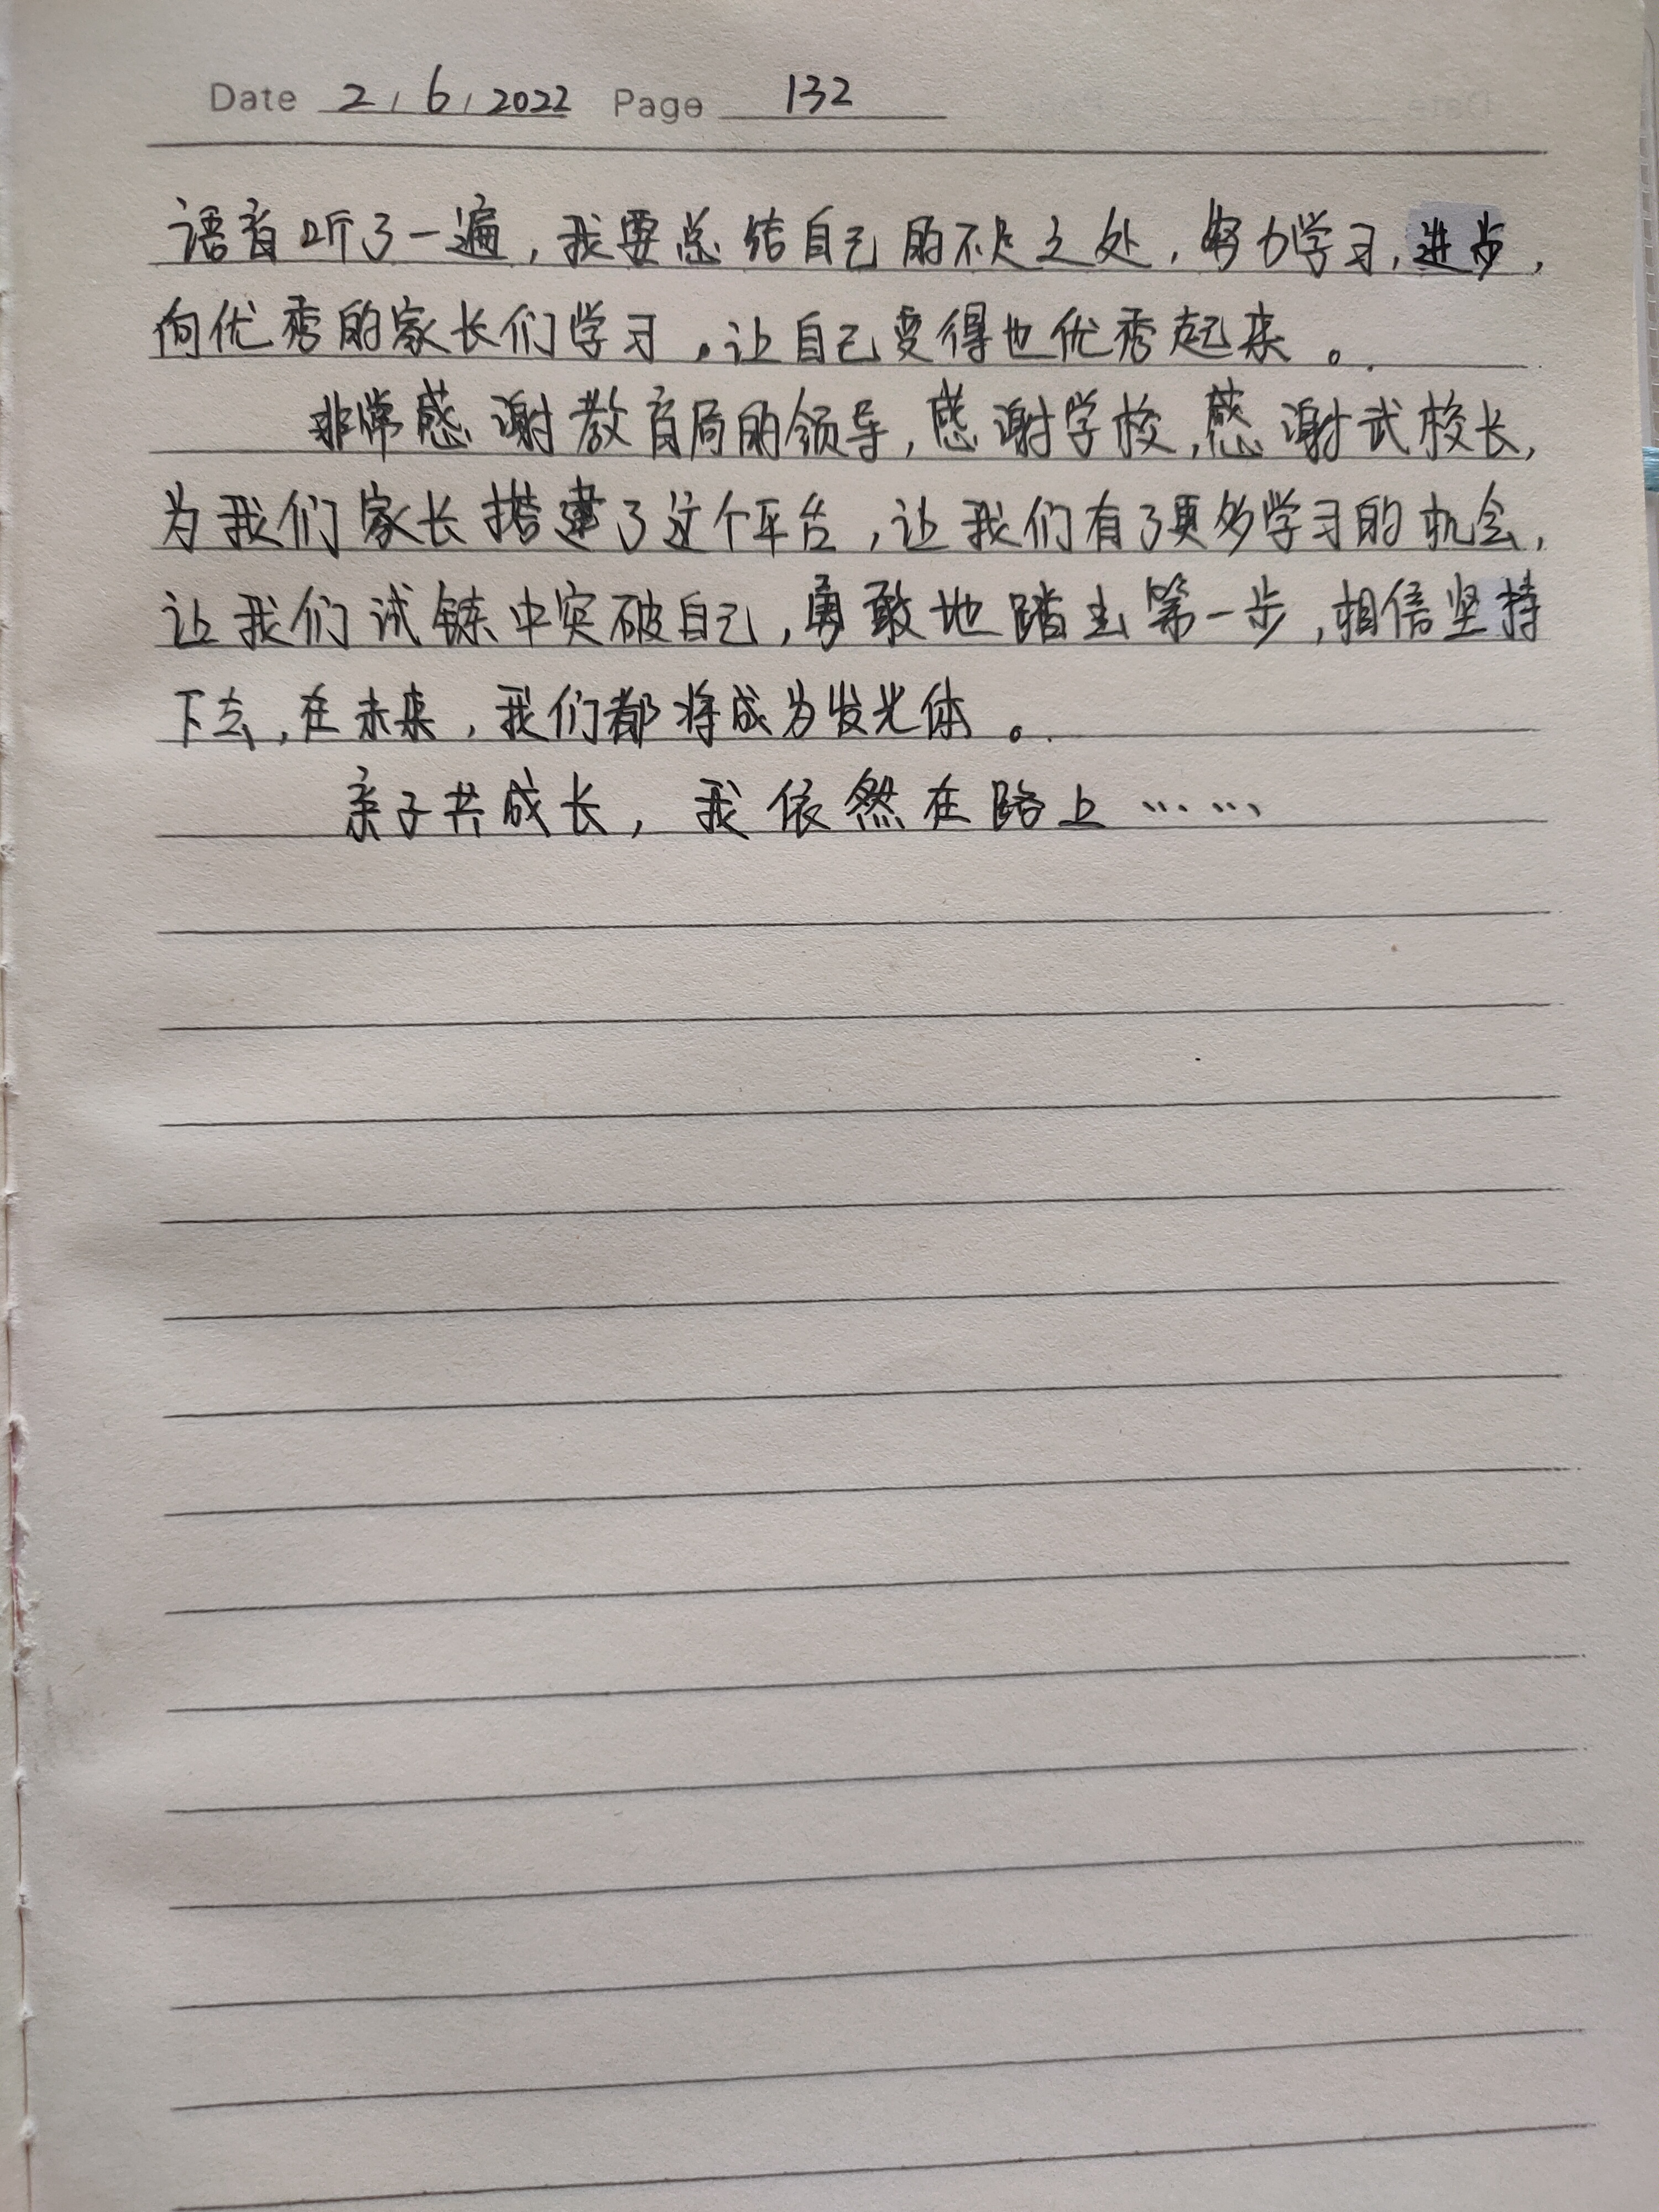 Date 2/6/2022 Page 132
语音听了一遍，我要总结自己的不足之处，努力学习，进步，
向优秀的家长们学习。让自己变得也优秀起来。
非常感谢教育局的领导，感谢学校，感谢武校长，
为我们家长搭建了这个平台，让我们有了更多学习的机会，
让我们试锬中突破自己，勇敢地踏出第一步，相信坚持
下去，在未来，我们都将成为发光体。
亲子共成长，我依然在路上……